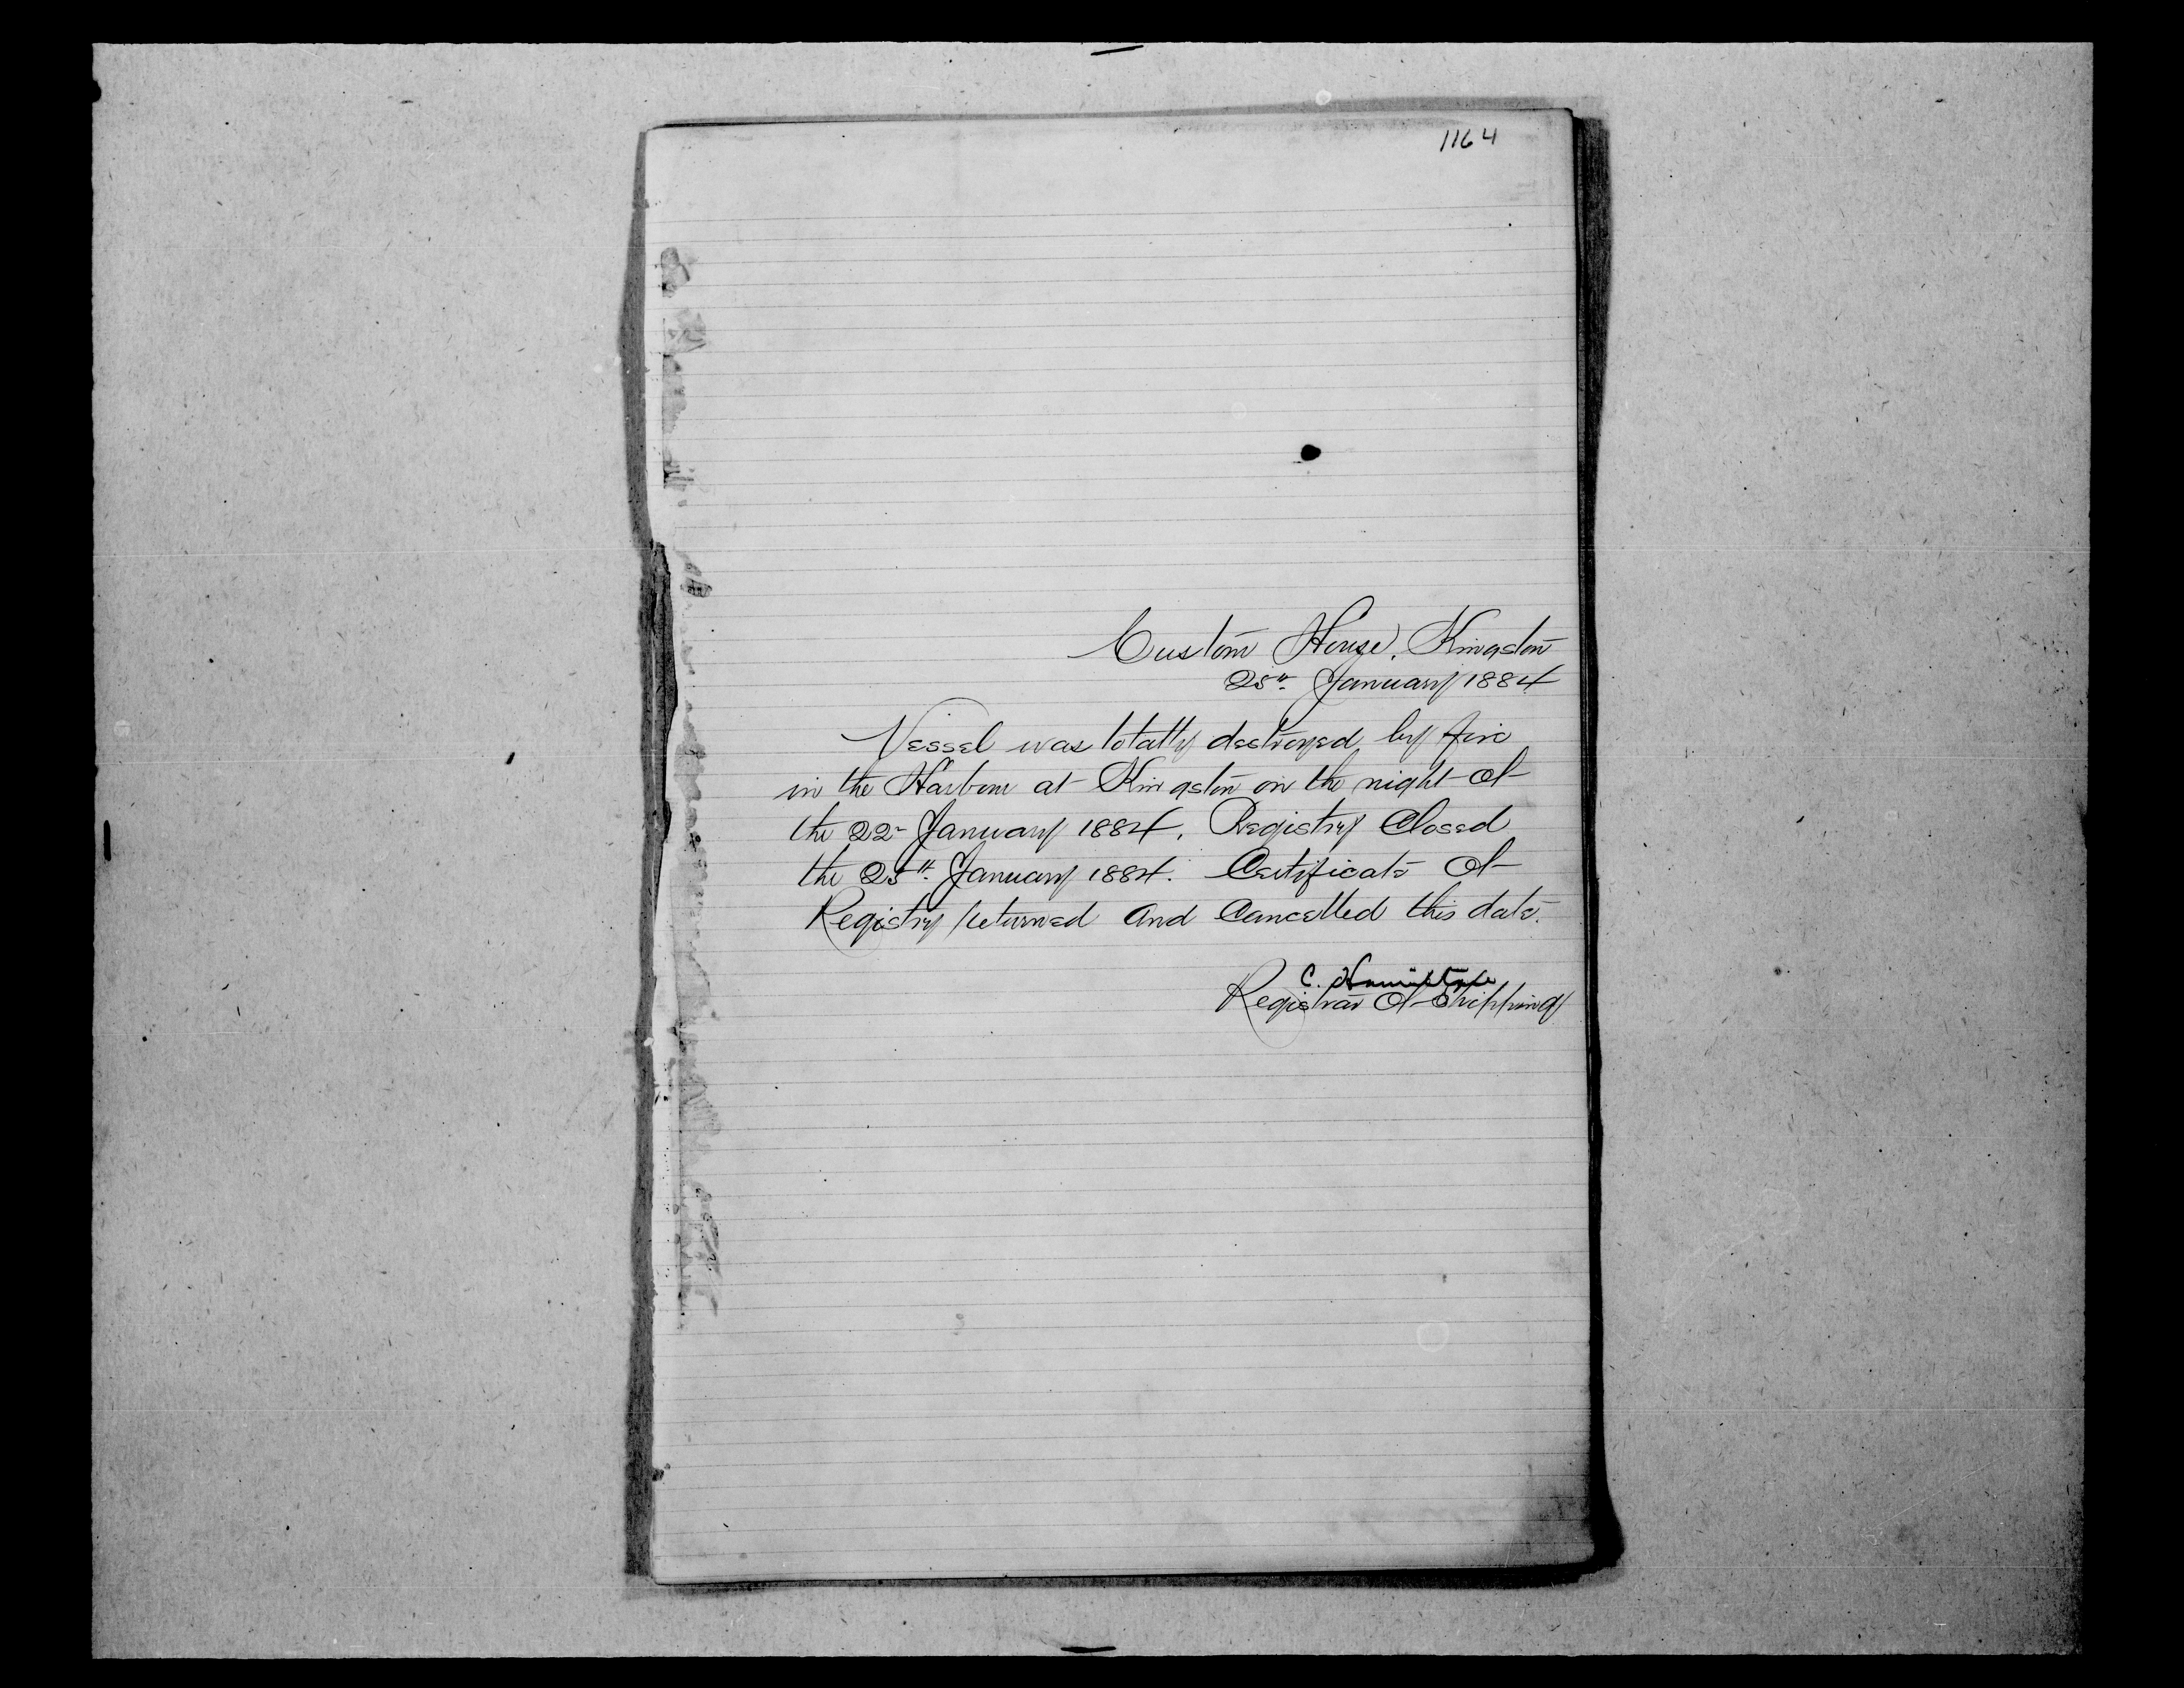 1164
Custom House, Kingston
25th January 1884
Vessel was totally destroyed by fire
in the Harbour at Kingston on the night of
the 22nd January 1884. Registry Closed
the 25th January 1884. Certificate of
Registry returned and Cancelled this date.
C. Hamilton
Registrar of Shipping